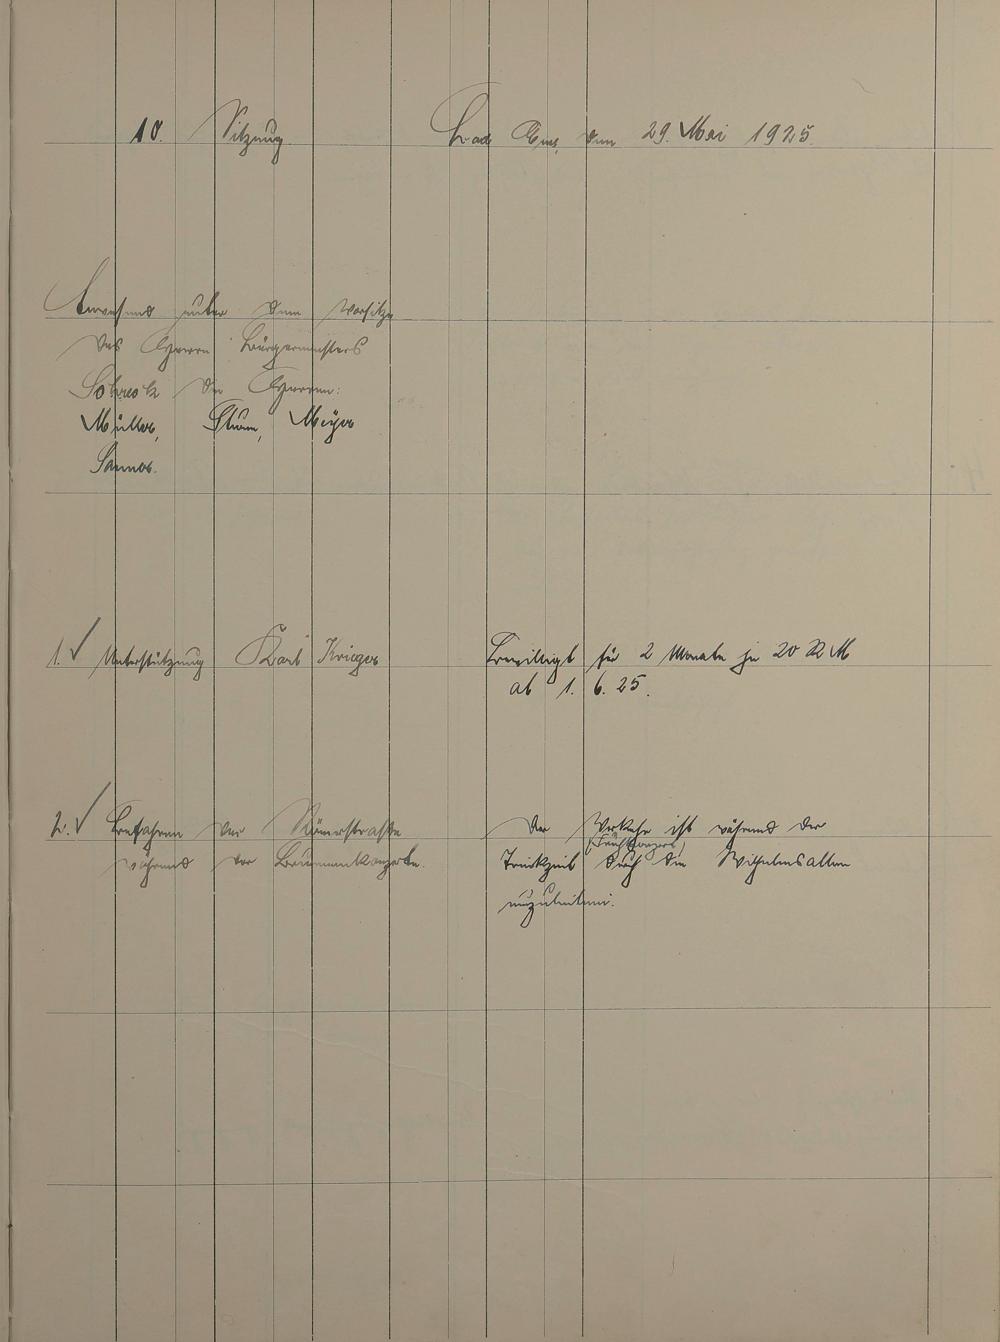 10. Sitzung Bad Ems, den 29. Mai 1925.
Anwesend unter dem Vorsitze
des Herrn Bürgermeisters
Schreck die Herren:
Müller, Sturm, Meyer
Sanner.
1. ✓ Unterstützung Karl Krieger Bewilligt für 2 Monate je 20 RM
ab 1. 6. 25.
2. ✓ Befahren der Römerstraße Der Verkehr ist während der
(Frühkonzert)
während der Brunnenkonzerte. Trinkzeit durch die Wilhelmsallee
umzuleiten.